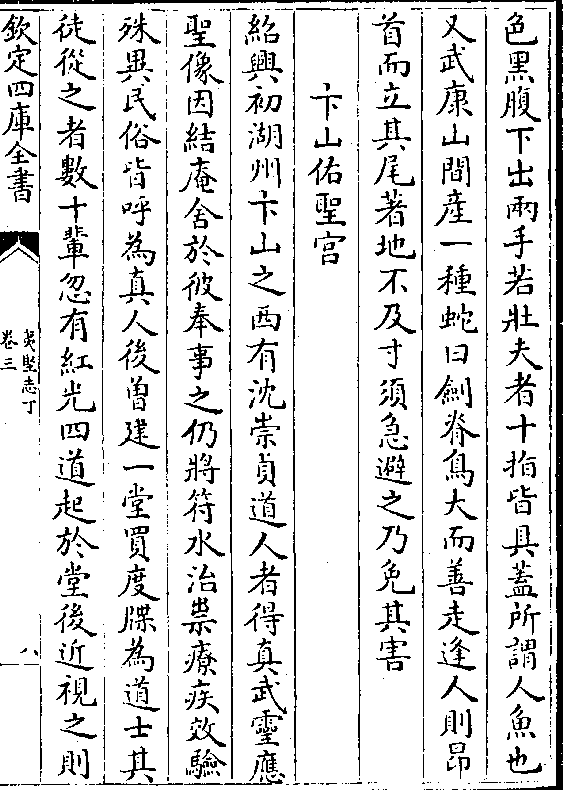 色黑腹下出兩手若壯夫者十指皆具蓋所謂人魚也
又武康山間産一種蛇曰劍脊烏大而善走逢人則昂
首而立其尾著地不及寸須急避之乃免其害
卞山佑聖宫
紹興初湖州卞山之西有沈崇貞道人者得真武靈應
聖像因結庵舍於彼奉事之仍將符水治祟療疾效驗
殊異民俗皆呼為真人後曽建一堂買度牒為道士其
徒從之者數十輩忽有紅光四道起於堂後近視之則
欽定四庫全書
夷堅志丁
卷三
八